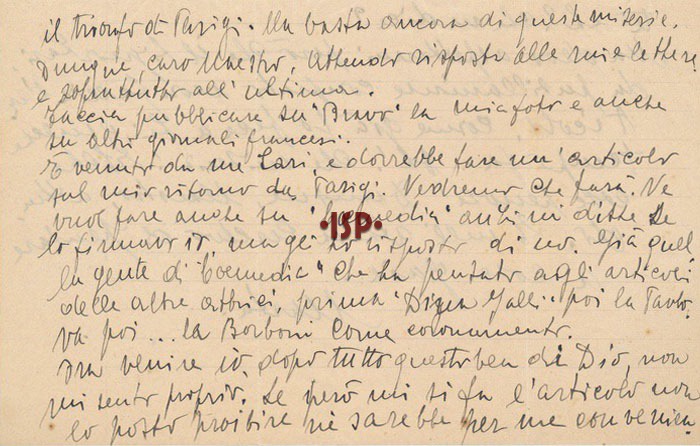 il trionfo di Parigi. Ma basta ancora di queste miserie.
Dunque, caro Maestro, attendo risposta alle mie lettere
e soprattutto all'ultima.
Faccia pubblicare su "Bravo" la mia foto e anche
su altri giornali francesi.
È venuto da me Casi, e dovrebbe fare un'articolo
sul mio ritorno da Parigi. Vedremo che farà. Ne
vuol fare anche su "Comedia" anzi mi disse se
lo firmavo io, ma gli ho risposto di no. Già quel
la gente di "Comedia" che ha pensato agli articoli
delle altre attrici, prima "Dina Galli" poi la Pavlo
va poi ... la Borboni come coronamento.
Ora venire io, dopo tutto questo ben di Dio, non
mi sento proprio. Se però mi si fa l'articolo non
lo posso proibire nè sarebbe per me convenien
ISP